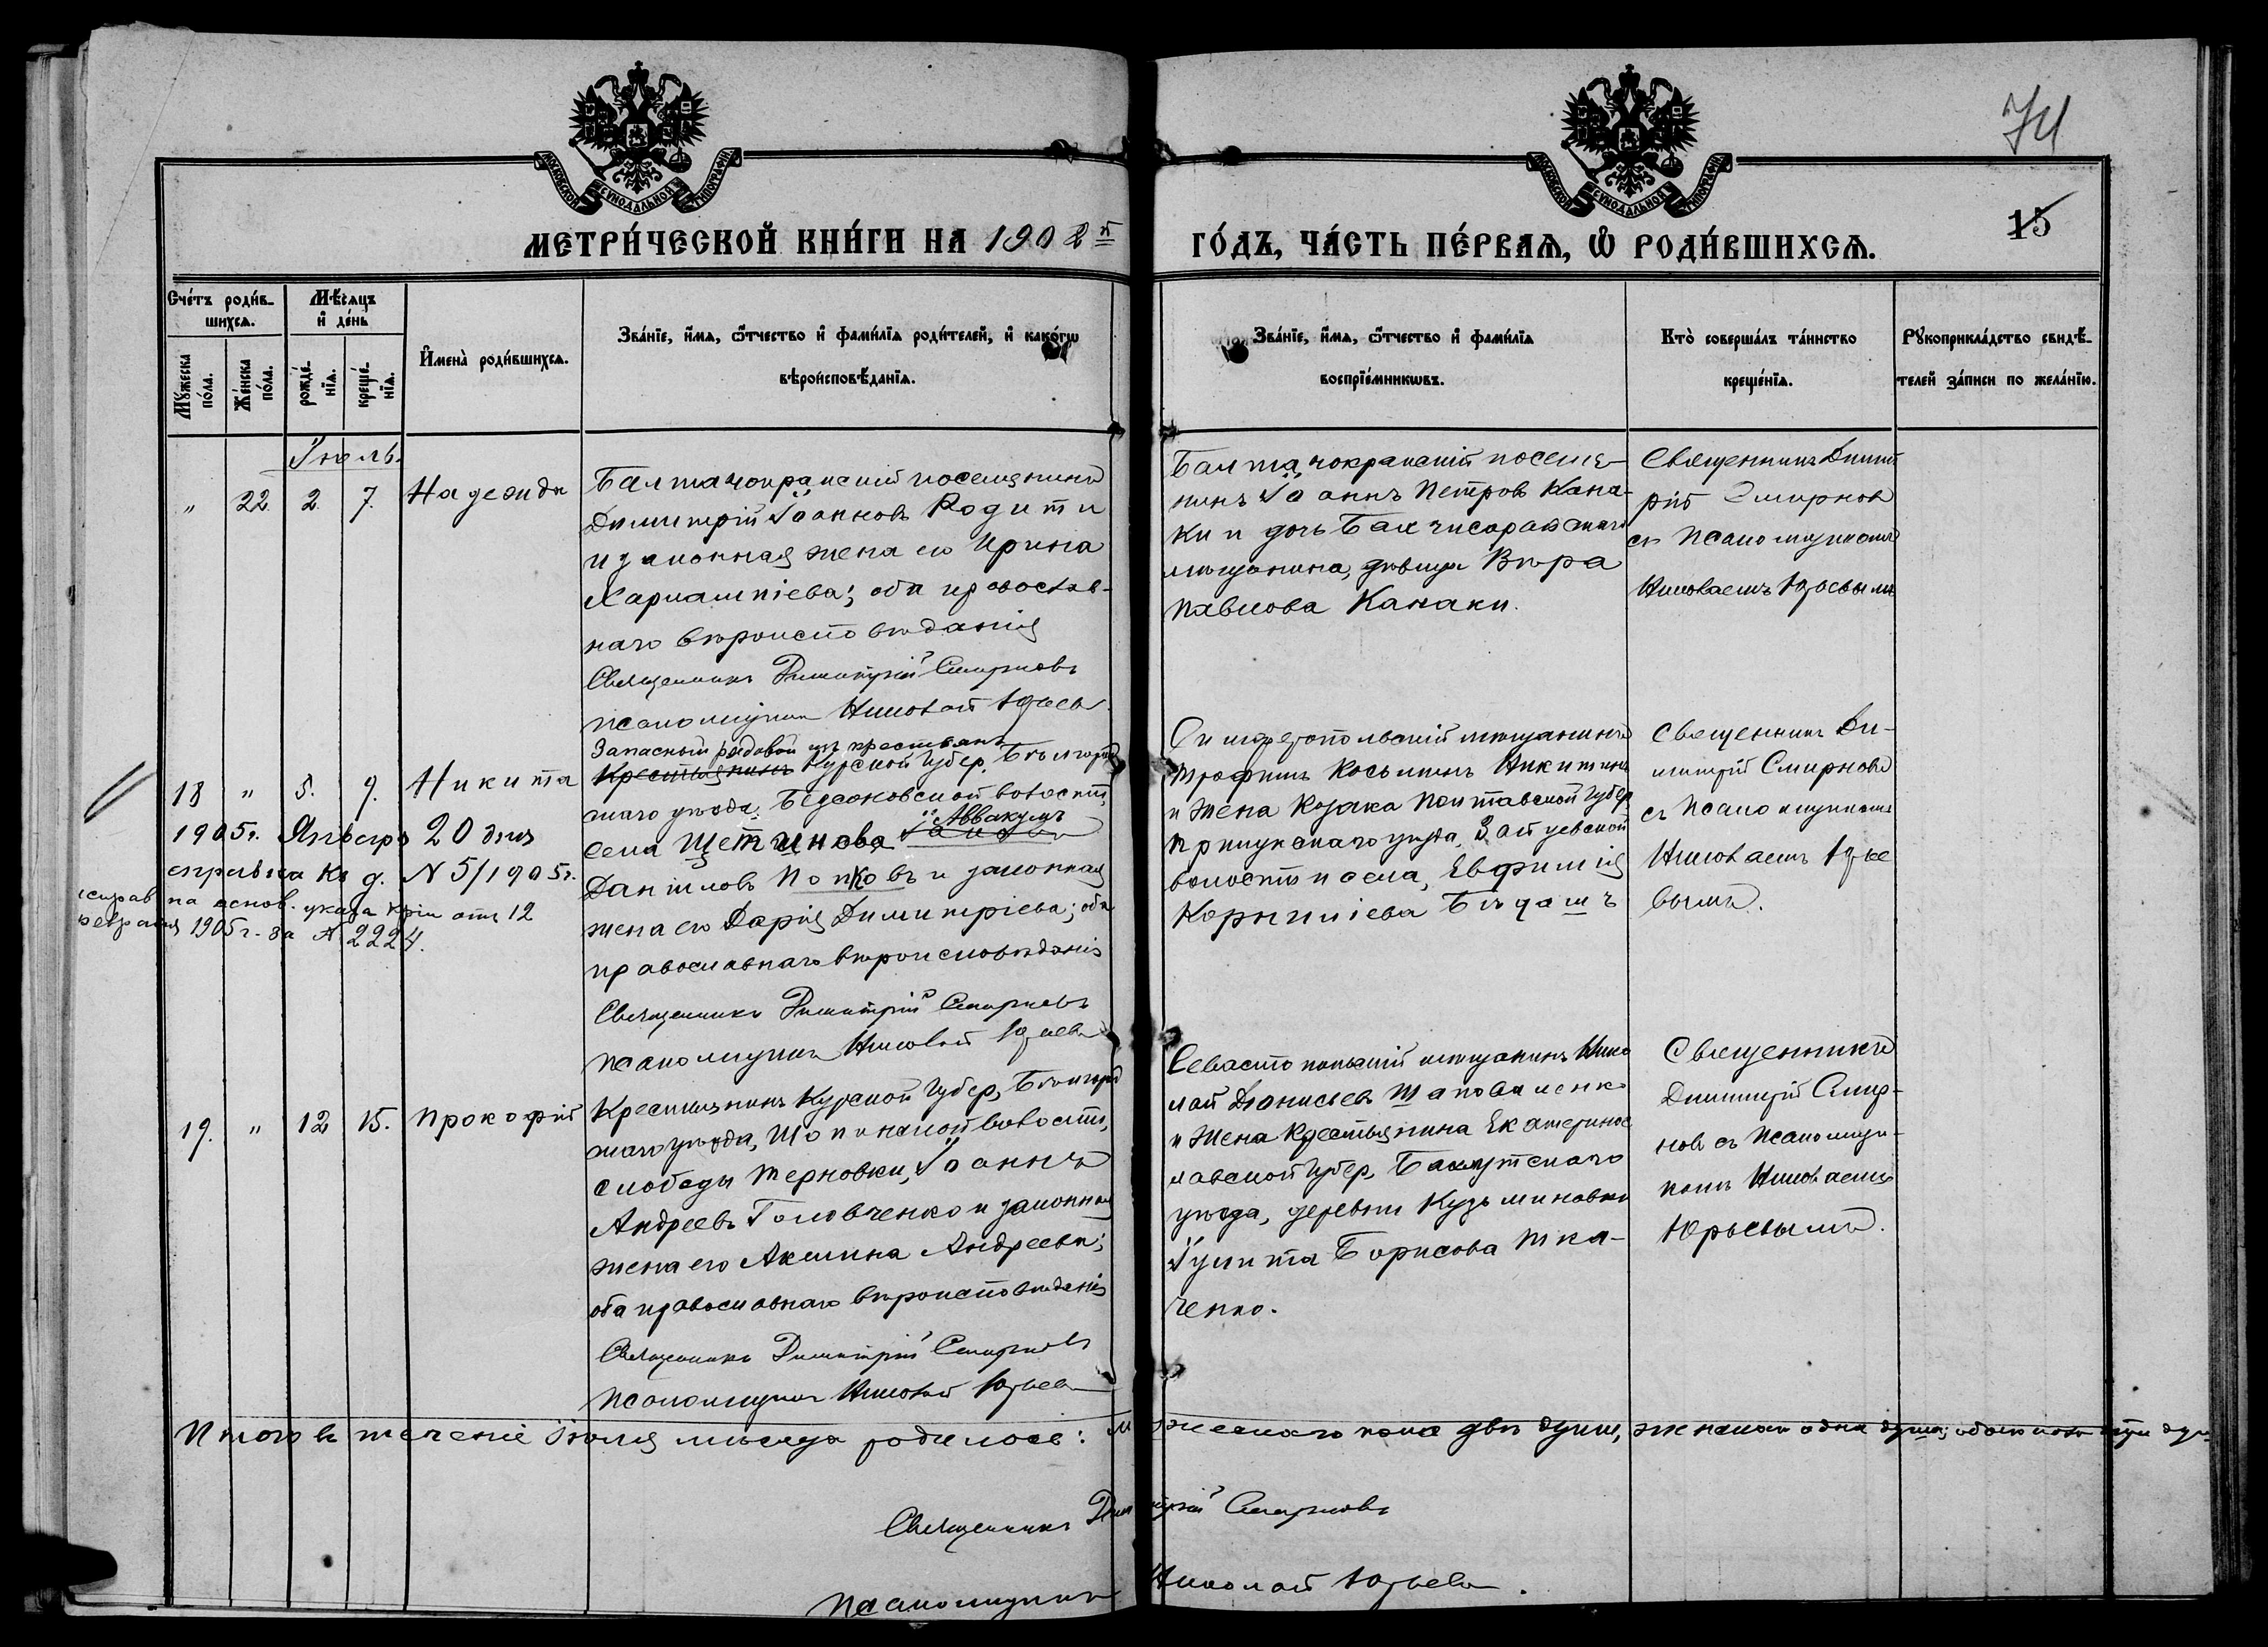 74
15
МОСКОВСКОЙ СУНОДАЛЬНОЙ ТИПОГРАФІИ
МОСКОВСКОЙ СУНОДАЛЬНОЙ ТИПОГРАФІИ
МЕТРИ́ЧЕСКОЙ КНИ́ГИ НА 1902 й
ГО́ДЪ, ЧА́СТЬ ПЕ́РВАЯ, Ѿ РОДИ́ВШИХСЯ.
Сче́тъ роди́в-
шихся.
Мꙋ́жеска по́ла.
Же́нска по́ла.
Мѣ́сяцъ и де́нь
рожде́-нїя.
креще́-нїя.
И҆мена̀ роди́вшихся.
Зва́нїе, и҆́мя, ѻ҆́тчество и҆ фами́лїя роди́телей, и҆ како́гѡ
вѣроисповѣ́данїя.
Зва́нїе, и҆́мя, ѻ҆́тчество и҆ фами́лїя
воспрїе́мникѡвъ.
Кто̀ соверша́лъ та́инство
креще́нїя.
Рꙋкоприкла́дство свидѣ́-
телей за́писи по жела́нїю.
Іюль.
" 22. 2. 7. Надежда
Балтачокракскій поселянинъ
Димитрій Іоанновъ Родити
и законная жена его Ирина
Харлампіева; оба православ-
наго вѣроисповѣданія
Священникъ Димитрій Смирновъ
Псаломщикъ Николай Юрьевъ.
Балтачокракскій поселя-
нинъ Іоаннъ Петровъ Кана-
ки и дочь Бахчисарайскаго
мѣщанина, дѣвица Вѣра
Павлова Канаки.
Священникъ Димит
рій Смирновъ
съ Псаломщикомъ
Николаемъ Юрьевымъ
18 " 5. 9. Никита
Запасный рядовой изъ крестьянъ
Крестьянинъ Курской губер. Бѣлгород
скаго уѣзда, волости,
села Щетинова Аввакумъ
Даніиловъ Попковъ и законная
жена его Дарія Димитріева; оба
православнаго вѣроисповѣданія
Священникъ Димитрій Смирновъ
Псаломщикъ Николай Юрьевъ
1905г. Января 20 дня
справка къ д. N 5/1905г.
исправ. на основ. указа Крім отъ 12
февраля 1905 г. за N 2224.
Симферопольскій мѣщанинъ
Трофимъ Косьминъ Никитинъ
и жена козака Полтавской губер.
Прилукскаго уѣзда,
волости и села, Евфимія
Корниліева
Священникъ Ди-
митрій Смирновъ
съ Псаломщикомъ
Николаемъ Юрье
вымъ.
19. " 12 15. Прокофій
Крестьянинъ Курской губер, Бѣлгород
скаго уѣзда, Шопинской волости,
слободы Терновки, Іоаннъ
Андреевъ Головченко и законная
жена его Акилина Андреева;
оба православнаго вѣроисповѣданія
Священникъ Димитрій Смирновъ
Псаломщикъ Николай Юрьевъ
Севастопольскій мѣщанинъ Нико
лай Діонисьевъ Шаповаленко
и жена крестьянина Екатеринос
лавской губер, Бахмутскаго
уѣзда, деревни Кузьминовки
Іулита Борисова Тка-
ченко.
Священникъ
Димитрій Смир-
новъ съ Псаломщи-
комъ Николаемъ
Юрьевымъ.
Итого въ теченіе Іюля мѣсяца родилось: мужескаго пола двѣ души, женскаго одна душа; обоего пола три души
Священникъ Димитрій Смирновъ
Псаломщикъ Николай Юрьевъ.